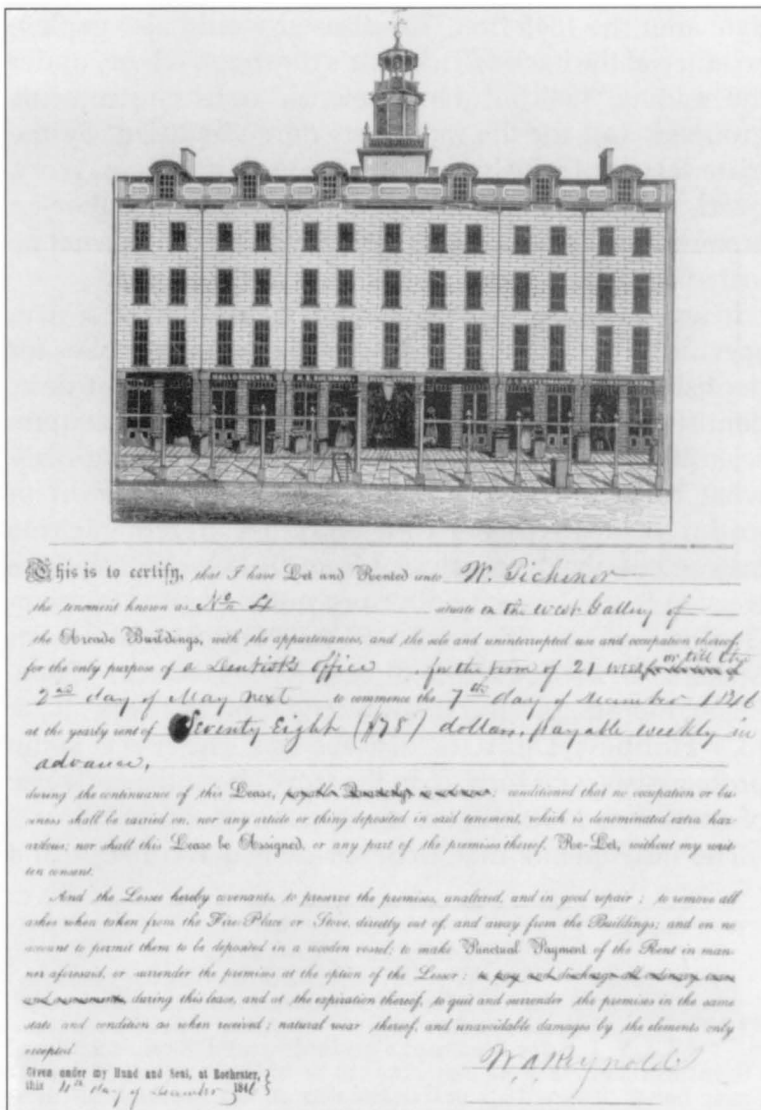 HALL & ROBERTS.
This is to certify, that I have Let and Rented unto W. Pichenor
the tenement known as No 4 situate on the West Gallery of
the Arcade Buildings, with the appurtenances, and the sole and uninterrupted use and occupation thereof,
for the only purpose of a Dentist's office, for the term of 21 weeks or till the
2nd day of May next to commence the 7th day of December 1846
at the yearly rent of Seventy Eight ($78) dollars, payable weekly in
advance,
during the continuance of this Lease, payable Quarterly in advance; conditioned that no occupation or bu-
siness shall be carried on, nor any article or thing deposited in said tenement, which is denominated extra haz-
ardous; nor shall this Lease be Assigned, or any part of the premises thereof, Re-Let, without my writ-
ten consent.
And the Lessee hereby covenants, to preserve the premises, unaltered, and in good repair; to remove all
ashes when taken from the Fire-Place or Stove, directly out of, and away from the Buildings; and on no
account to permit them to be deposited in a wooden vessel; to make Punctual Payment of the Rent in man-
ner aforesaid, or surrender the premises at the option of the Lessor; to pay and discharge all ordinary taxes
and assessments during this lease, and at the expiration thereof, to quit and surrender the premises in the same
state and condition as when received; natural wear thereof, and unavoidable damages by the elements only
excepted
W A Reynolds
Given under my Hand and Seal, at Rochester,
this 4th day of December 1846